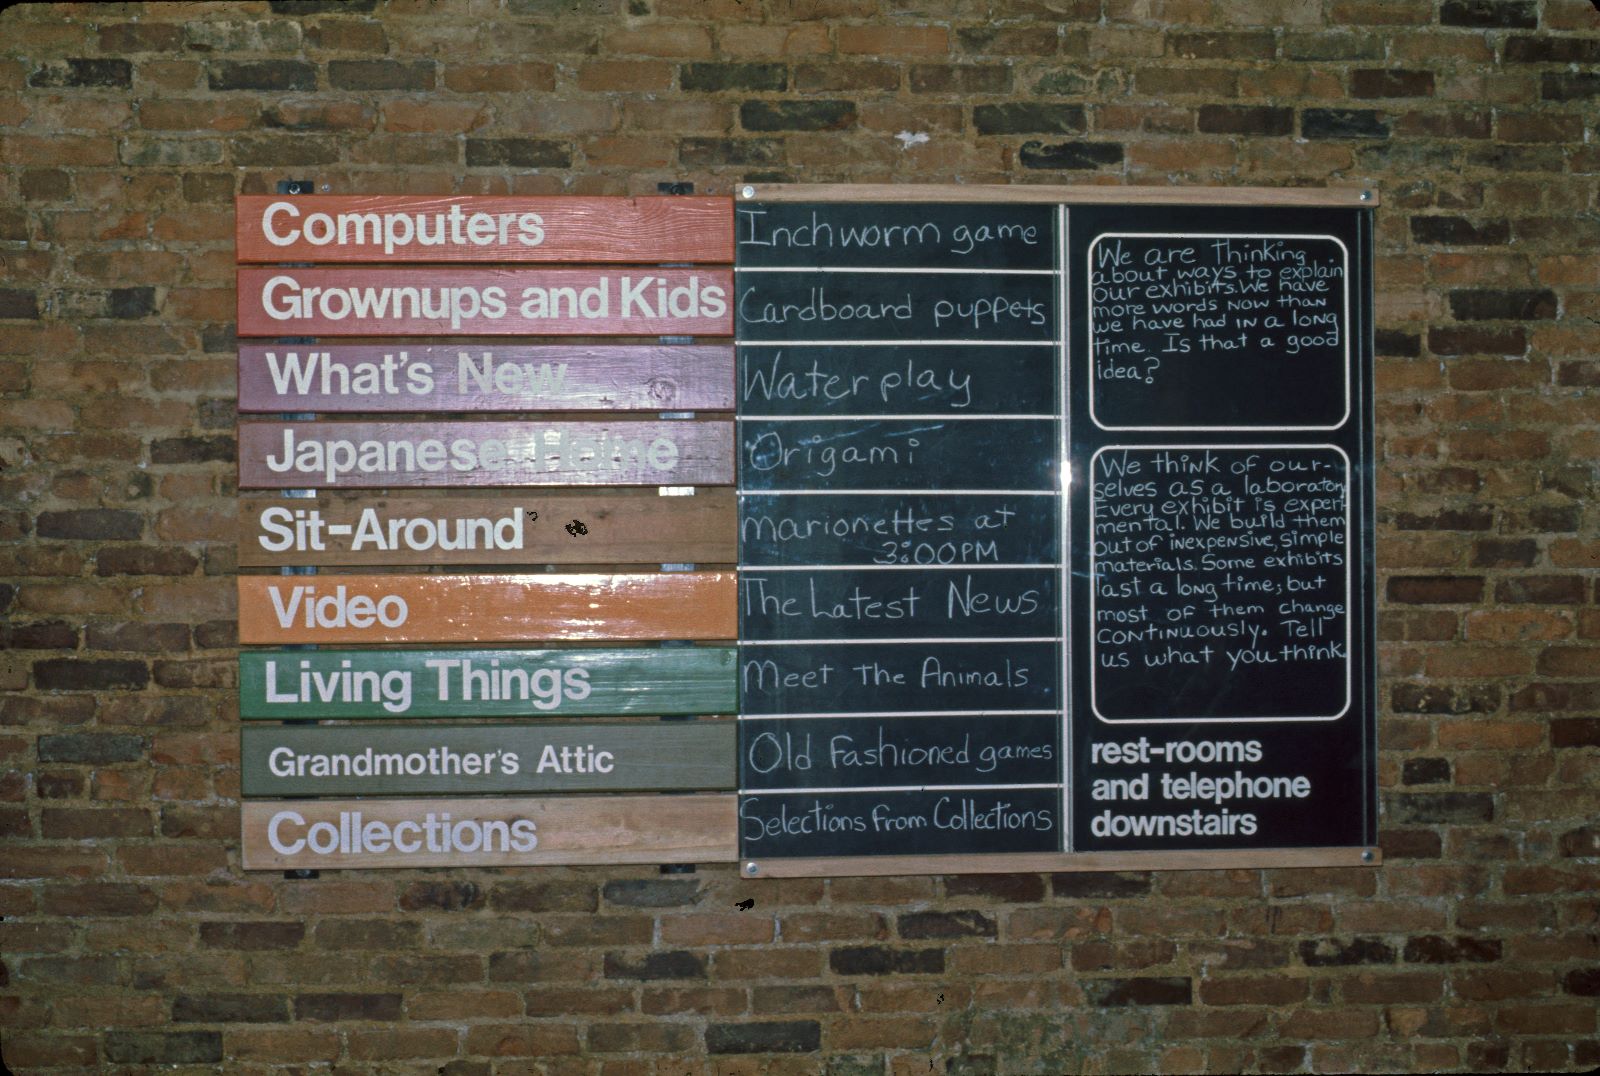 Computers
Grownups and Kids
What's New
Japanese Home
Sit-Around
Video
Living Things
Grandmother's Attic
Collections
Inchworm game
Cardboard puppets
Water play
Origami
Marionettes at
3:00PM
The Latest News
Meet The Animals
Old Fashioned games
Selections from Collections
We are Thinking
about ways to explain
our exhibits. We have
more words now than
we have had in a long
time. Is that a good
idea?
We think of our-
selves as a laboratory
Every exhibit is experi-
mental. We build them
out of inexpensive, simple
materials. Some exhibits
last a long time; but
most of them change
continuously. Tell
us what you think.
rest-rooms
and telephone
downstairs